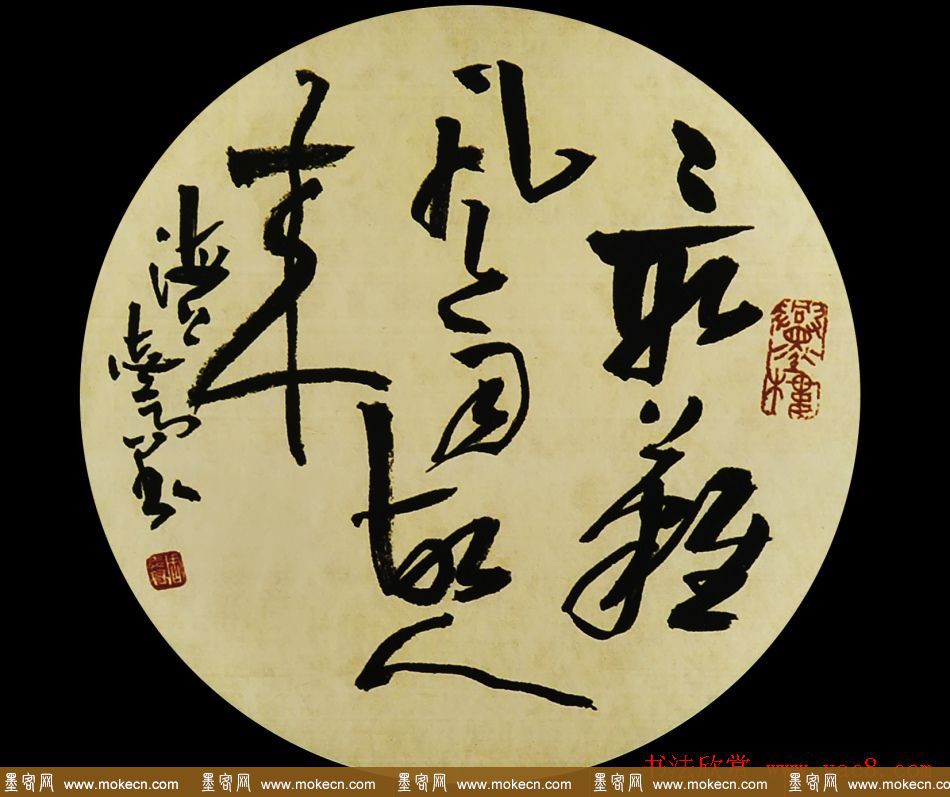 最難
風雨故人
來
书法欣赏 www.yac8.com
墨客网 www.mokecn.com 墨客网 www.mokecn.com 墨客网 www.mokecn.com 墨客网 www.mokecn.com 墨客网 www.mokecn.com